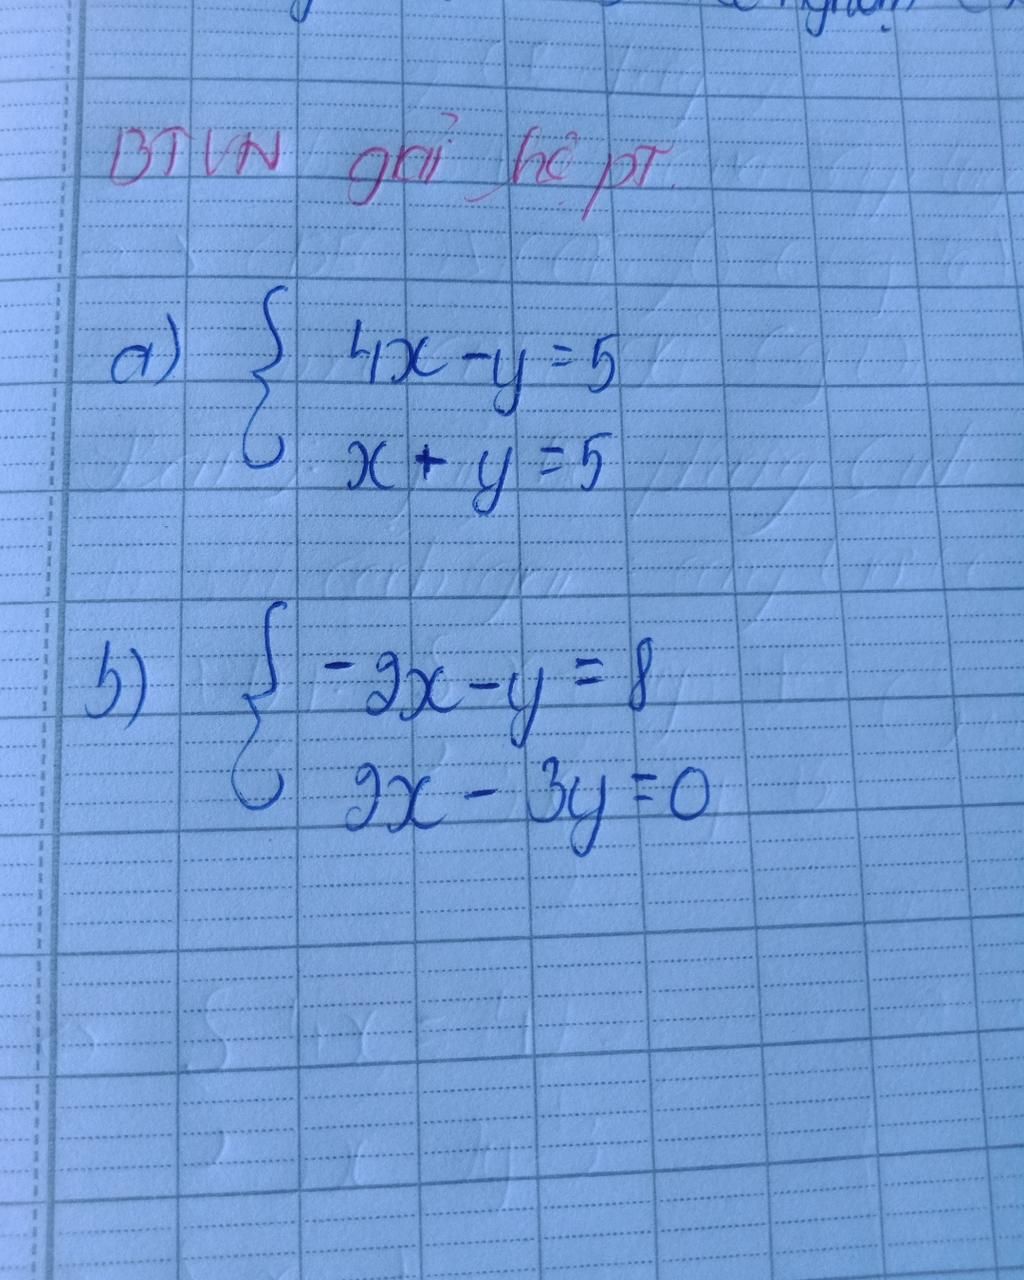 BTVN giải hệ pT.
a) { 4x - y = 5
x + y = 5
b) { -2x - y = 8
2x - 3y = 0